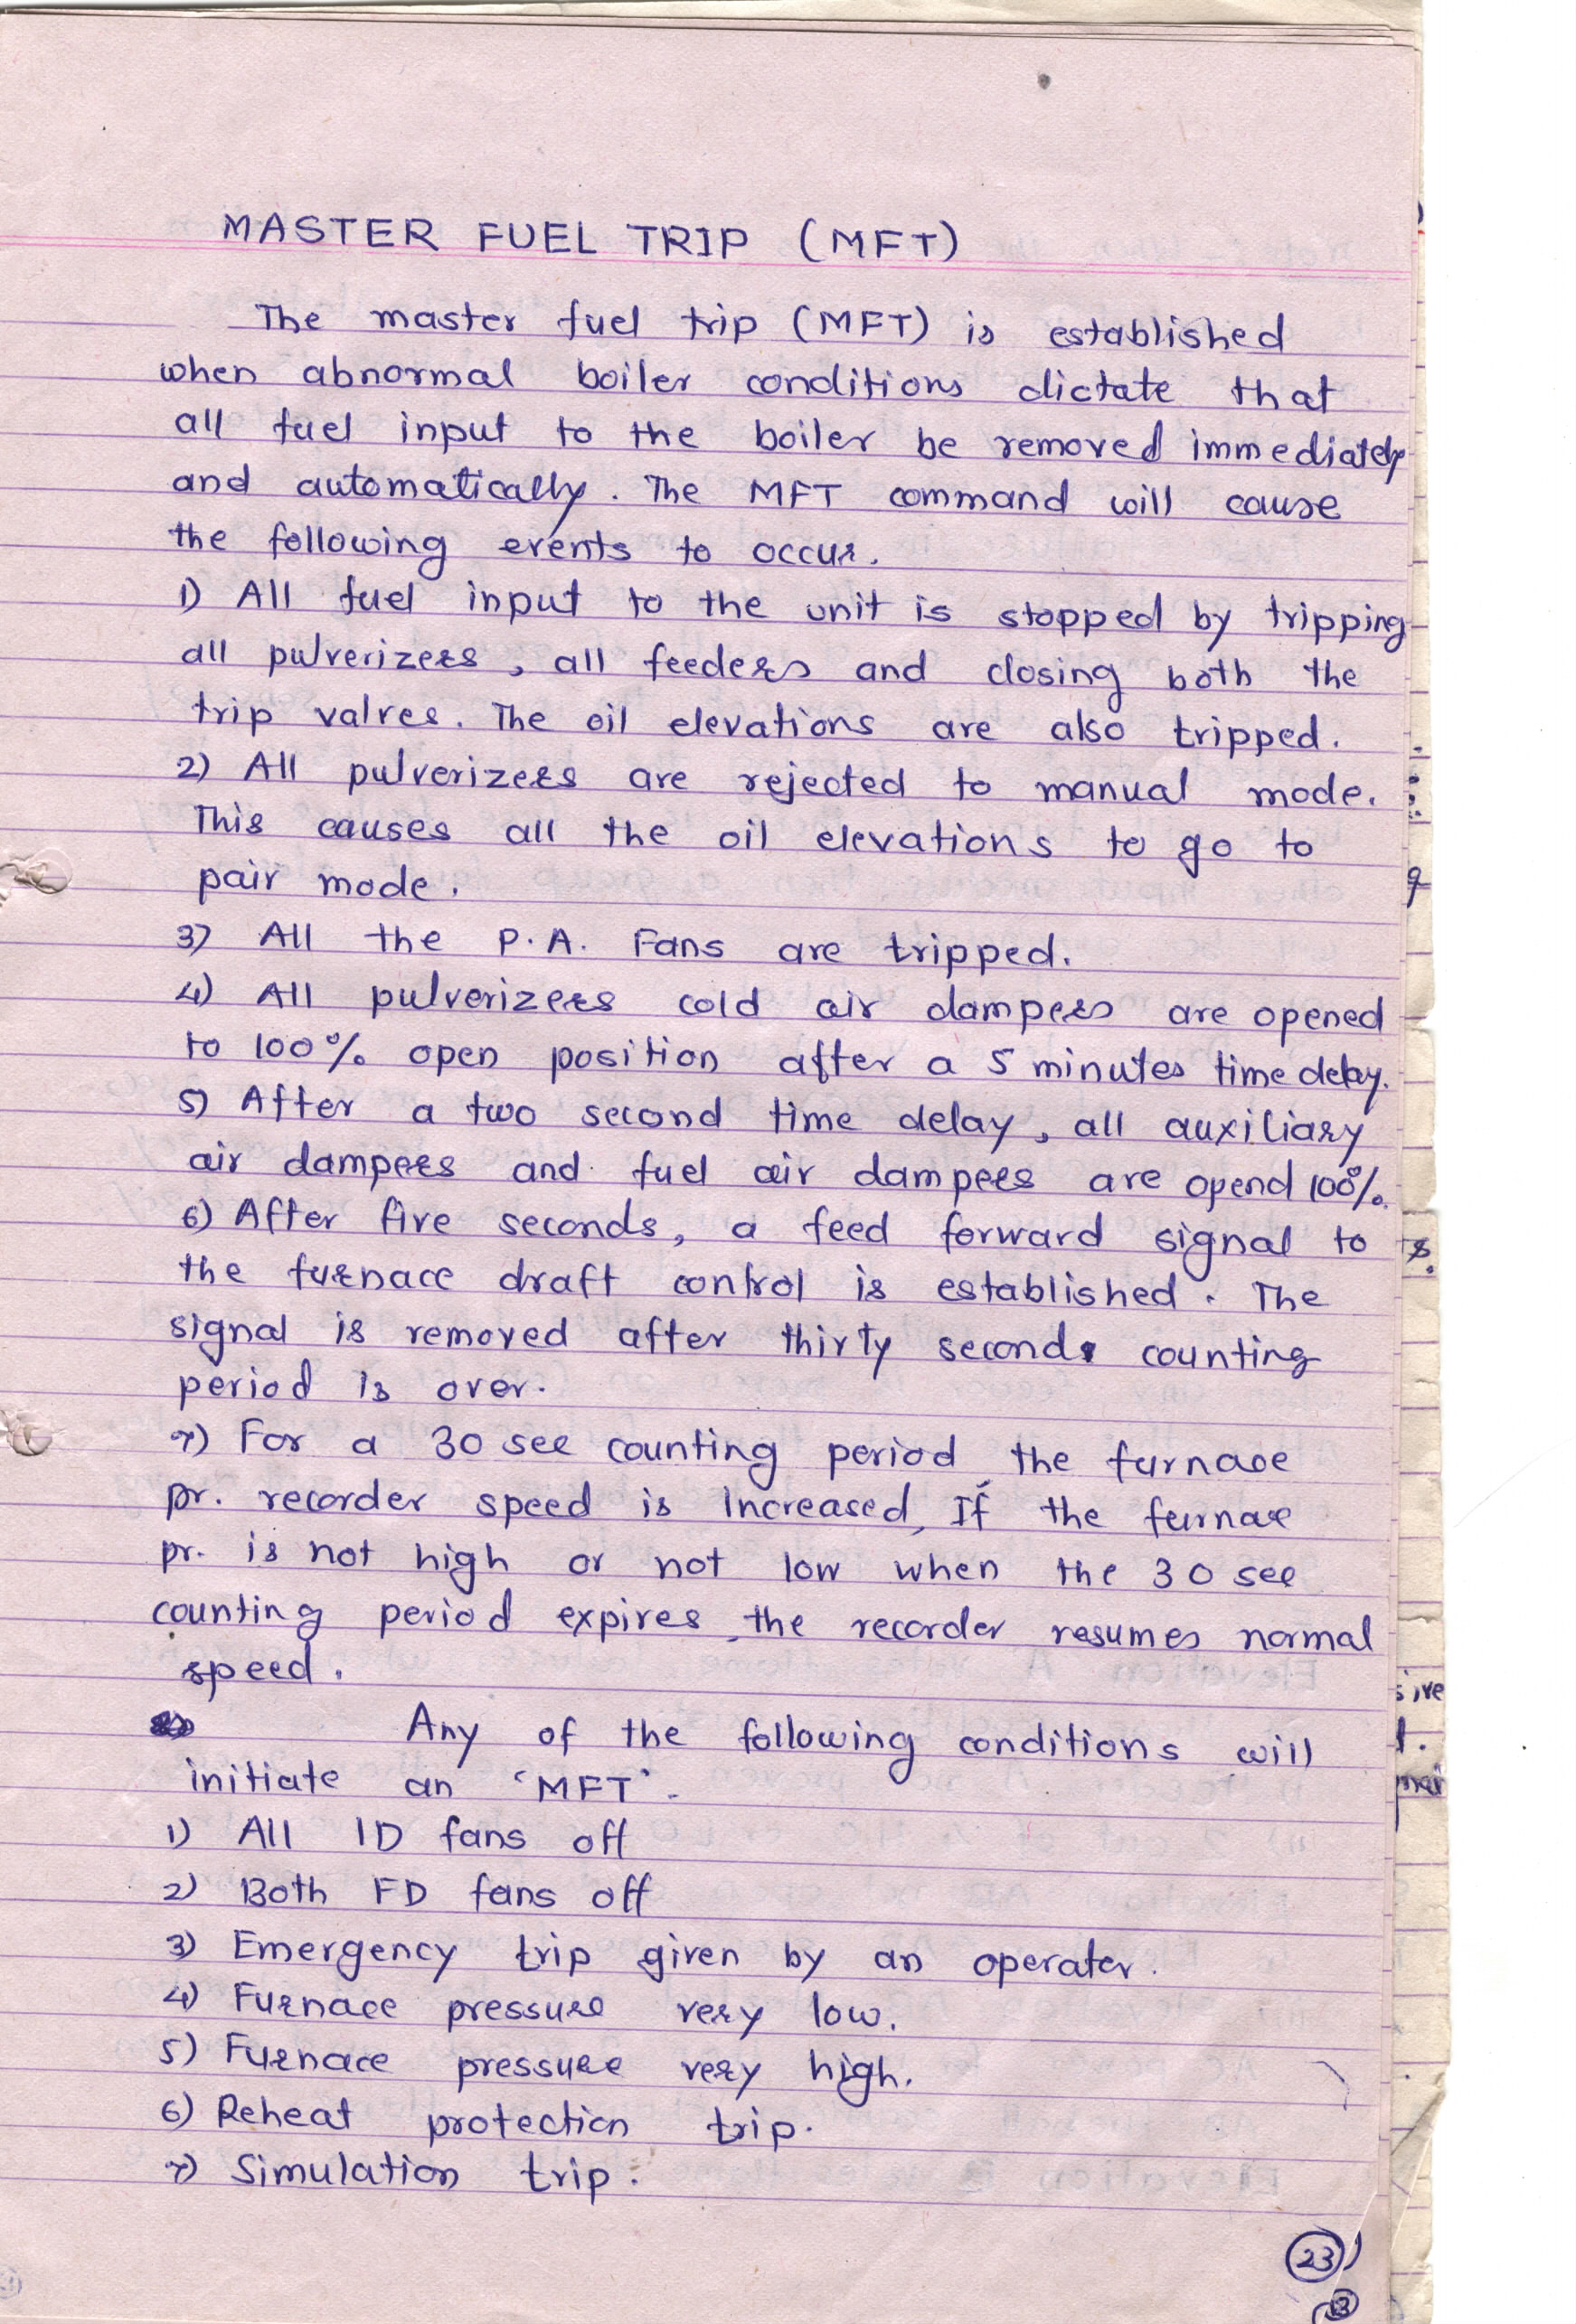 MASTER FUEL TRIP (MFT)
The master fuel trip (MFT) is established
when abnormal boiler conditions dictate that
all fuel input to the boiler be removed immediately
and automatically. The MFT command will cause
the following events to occur.
1) All fuel input to the unit is stopped by tripping
all pulverizers, all feeders and closing both the
trip valves. The oil elevations are also tripped.
2) All pulverizers are rejected to manual mode.
This causes all the oil elevations to go to
pair mode.
3) All the P.A. Fans are tripped.
4) All pulverizers cold air dampers are opened
to 100% open position after a 5 minutes time delay.
5) After a two second time delay, all auxiliary
air dampers and fuel air dampers are opend 100%.
6) After five seconds, a feed forward signal to
the furnace draft control is established. The
signal is removed after thirty seconds counting
period is over.
7) For a 30 sec counting period, the furnace
pr. recorder speed is Increased, If the furnace
pr. is not high or not low when the 30 sec
counting period expires, the recorder resumes normal
speed.
Any of the following conditions will
initiate an 'MFT'.
1) All ID fans off
2) Both FD fans off
3) Emergency trip given by an operater.
4) Furnace pressure very low.
5) Furnace pressure very high.
6) Reheat protection trip.
7) Simulation trip.
23